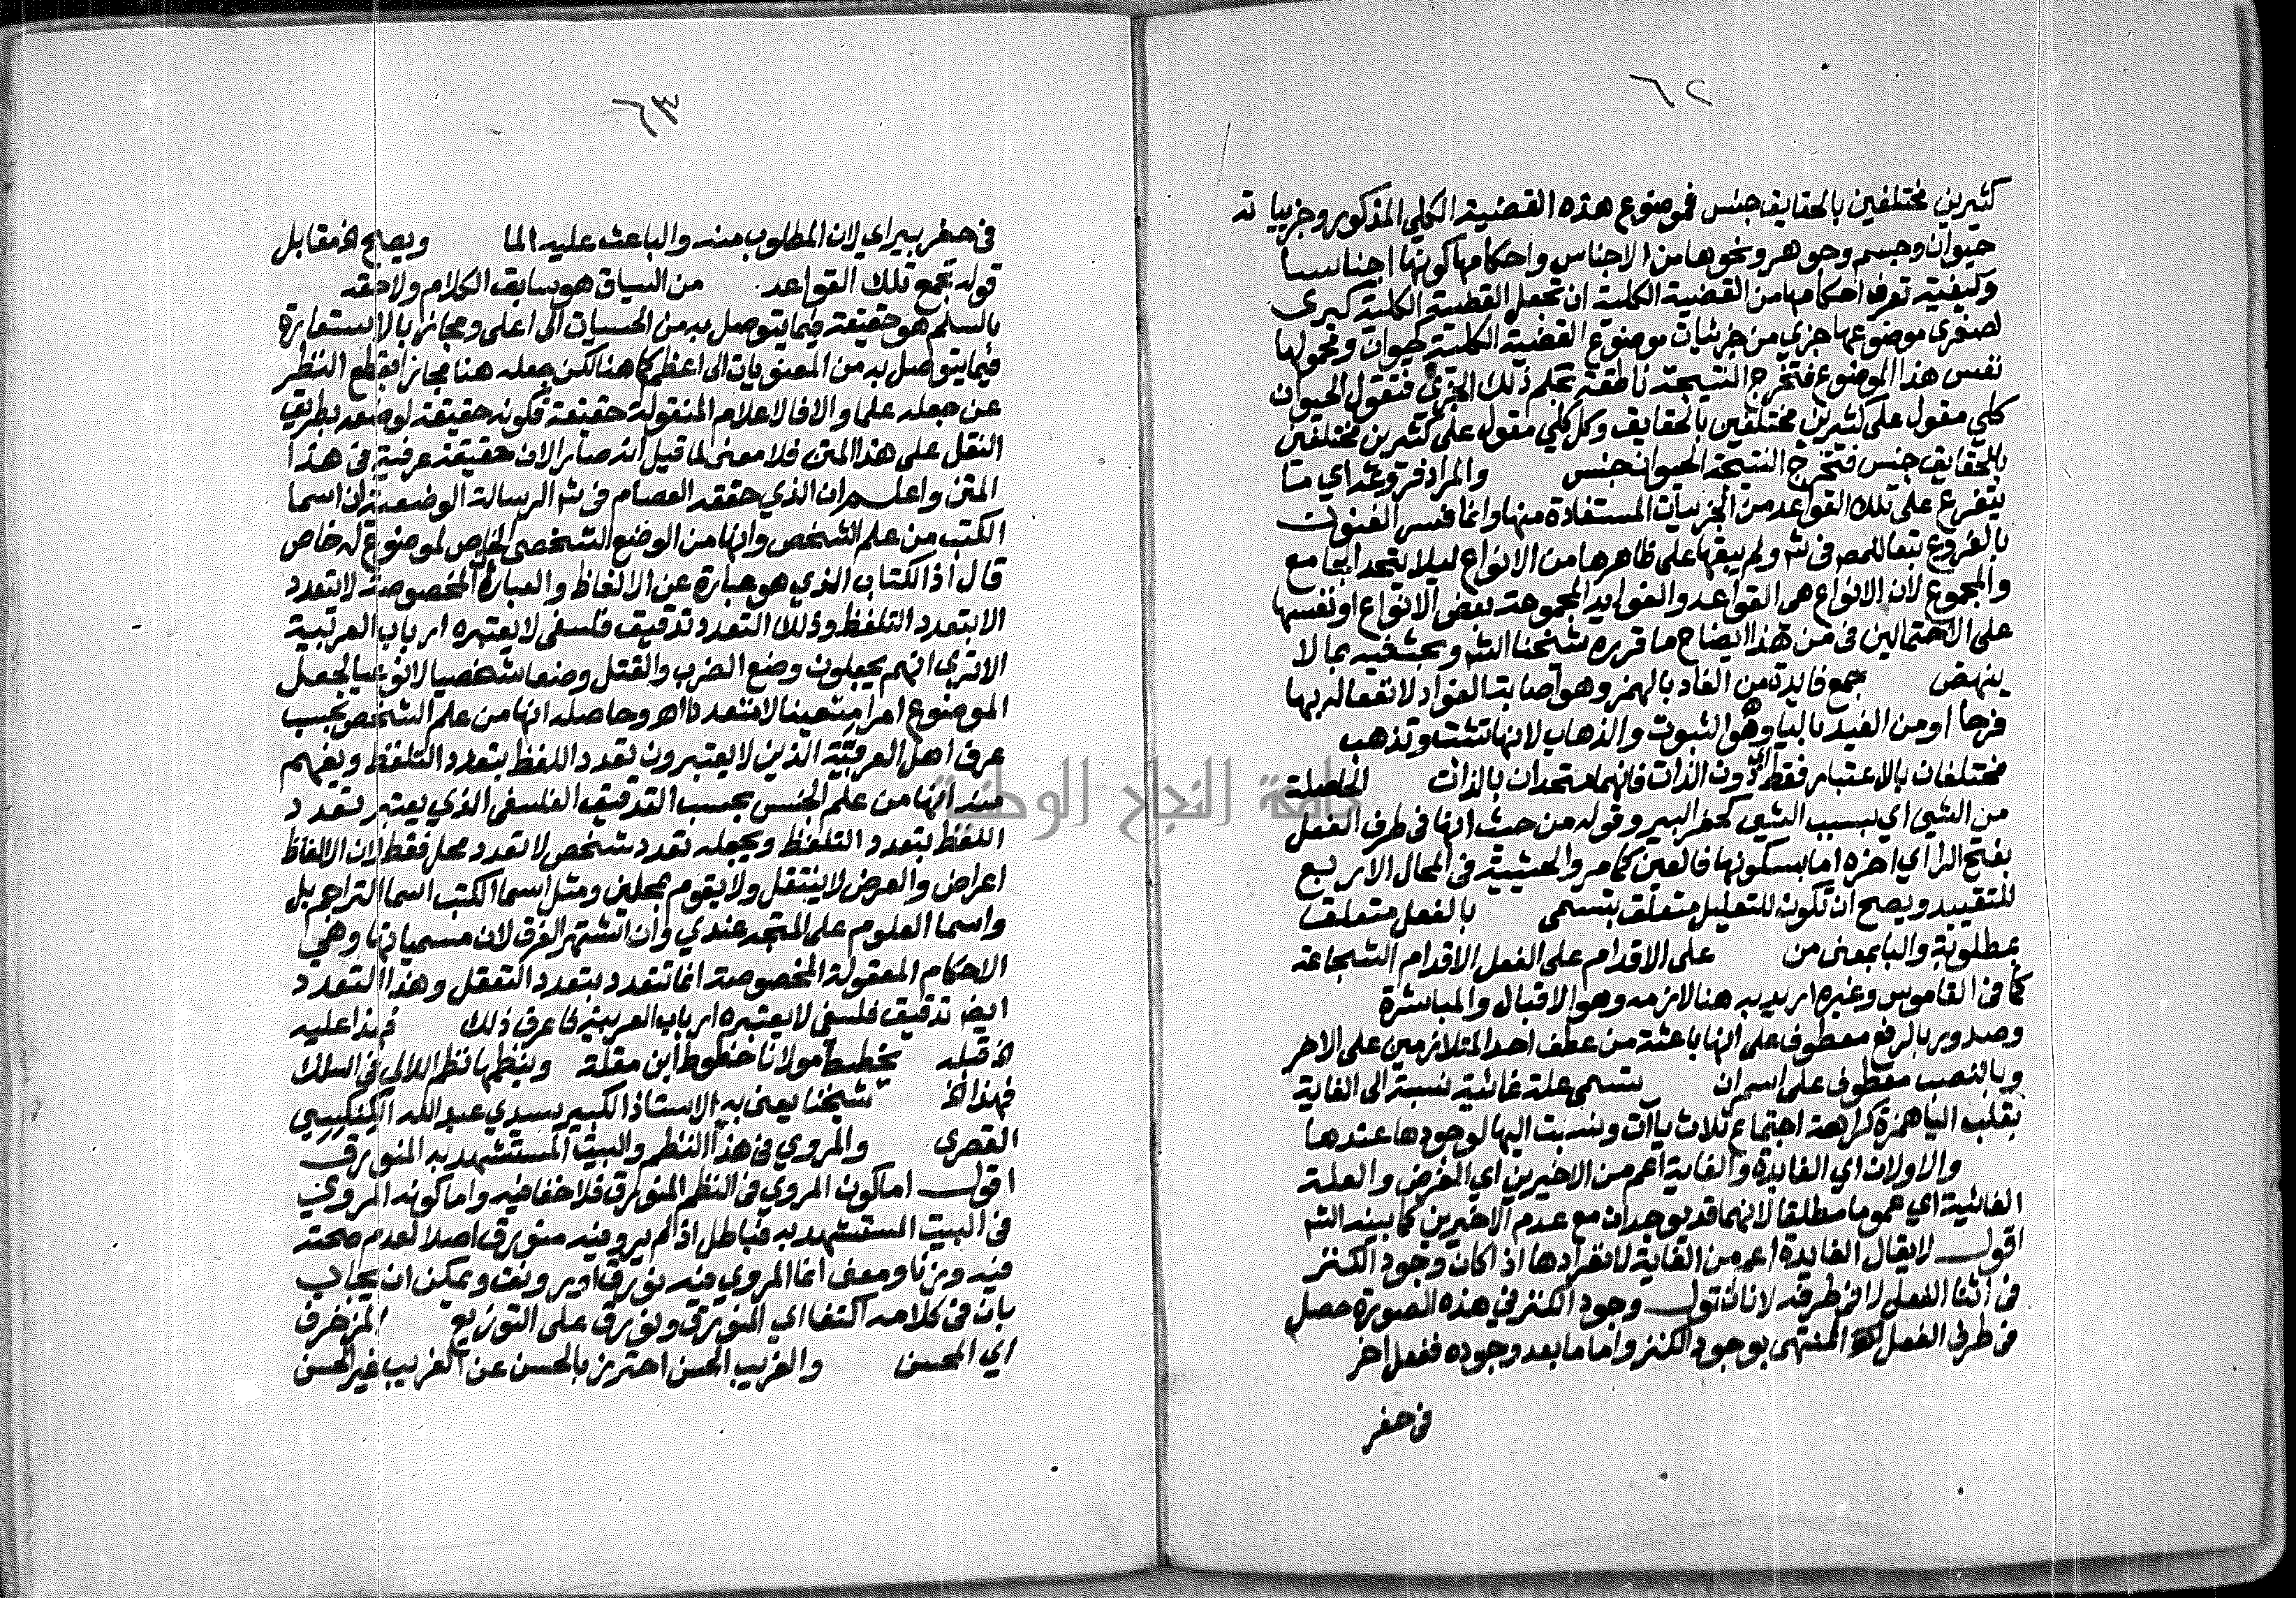 ٦٢
كثيرين مختلفين بالحقايق جنس فموضوع هذه القضية الكلي المذكور وجزييا ته
حيوان وجسم وجوهر ونحوها من الاجناس واحكامها كونها اجناسا
وكيفية تعرف احكامها من القضية الكلية ان تجعل القضية الكلية كبرى
لصغرى موضوعها جزي من جزئيات موضوع القضية الكلية كحيوان ومحمولها
نفس هذا الموضوع فتخرج النتيجة ناطقة بحكم ذلك الجزئ فتقول الحيوان
كلي مقول على كثيرين مختلفين بالحقايق وكل كلي مقول على كثيرين مختلفين
بالحقايق جنس فتخرج النتيجة الحيوان جنس والمراد فروعه اي ما
يتفرع على تلك القواعد من الجزييات المستفادة منها وانما فسر الفنون
بالفروع تبعا للمص في شر ولم يبقها على ظاهرها من الانواع ليلا يتحد مع
والمجموع لان الانواع هي القواعد والفوايد المجموعة بعض الانواع او نفسها
على الاحتمالين في من هذا ايضاح ما قرره شيخنا الش وبحث فيه بما لا
ينهض جمع فايدة من الفاد بالهمز وهو اصابة الفواد لانفعاله بها
فرحا او من الفيد باليا وهو الثبوت والذهاب لانها تثبت وتذهب
مختلفان بالاعتبار فقط اي دون الذات فانهما متحدان بالذات الحاصلة
من الشي اي بسبب الشي كحفر البير وقوله من حيث انها في طرف الفعل
بفتح الرا اي اخره اما بسكونها فالعين كما مر والحيثية في المحال الاربع
للتقييد ويصح ان تكون للتعليل متعلق بتسمى بالفعل متعلق
بمطلوبة والبا بمعنى من على الاقدام على الفعل الاقدام الشجاعة
كما في القاموس وغيره اريد به هنا لازمه وهو الاقبال والمباشرة
وصدور بالرفع معطوف على انها باعثة من عطف احد المتلازمين على الاخر
وبالنصب معطوف على اسم ان تسمى علة غائية نسبة الى الغاية
بقلب اليا همزة كراهة اجتماع ثلاث ياآت ونسبت اليها لوجودها عندها
والاولان اي الفايدة والغاية اعم من الاخيرين اي الغرض والعلة
الغائية اي عموما مطلقا لانهما قد يوجدان مع عدم الاخيرين كما بينه الش
اقول لا يقال الفايدة اعم من الغاية لانفرادها اذا كان وجود الكنز
في اثنا الفعل لا في طرفه لانا نقول وجود الكنز في هذه الصورة حصل
في طرف الفعل المنتهي بوجود الكنز واما ما بعد وجوده ففعل اخر
في حفر
٦٣
في حفر بير اي لان المطلوب منه والباعث عليه الما ويصح الخ مقابل
قوله تجمع تلك القواعد من السياق هو سابق الكلام ولاحقه
بالسلم هو حقيقة فيما يتوصل به من الحسيات الى اعلى ومجاز بالاستعارة
فيما يتوصل به من المعنويات الى اعظم كما هنا لكن جعله هنا مجازا بقطع النظر
عن جعله علما والا فالاعلام المنقولة حقيقة فكونه حقيقة لوضعه بطريق
النقل على هذا المتن فلا معنى لما قيل انه صار الان حقيقة عرفية في هذا
المتن واعلم ان الذي حققه العصام في شر الرسالة الوضعية ان اسما
الكتب من علم الشخص وانها من الوضع الشخصي الخاص لموضوع له خاص
قال اذ الكتاب الذي هو عبارة عن الالفاظ والعبارة المخصوصة لا تتعدد
الا بتعدد التلفظ وذلك التعدد تدقيق فلسفي لا يعتبره ارباب العربية
الا ترى انهم يجعلون وضع الضرب والقتل وضعا شخصيا لا نوعيا بجعل
الموضوع امرا متعينا لا متعددا اهر وحاصله انها من علم الشخص بحسب
عرف اهل العربية الذين لا يعتبرون تعدد اللفظ بتعدد التلفظ ويفهم
منه انها من علم الجنس بحسب التدقيق الفلسفي الذي يعتبر تعدد
اللفظ بتعدد التلفظ ويجعله تعدد شخص لا تعدد محل فقط لان الالفاظ
اعراض والعرض لا ينتقل ولا يقوم بمحلين ومثل اسما الكتب اسما التراجم بل
واسما العلوم على المتجه عندي وان اشتهر الفرق لان مسمياتها وهي
الاحكام المعقولة المخصوصة انما تتعدد بتعدد التعقل وهذا التعدد
ايض تدقيق فلسفي لا يعتبره ارباب العربية كما عرف ذلك فهذا عليه
الخ قبله بخطيط مولانا خطوط ابن مقلة وينظمها نظم اللالي في السلك
فهذا الخ شيخنا يعني به الاستاذ الكبير سيدي عبد الله الكنكسي
القصرى والمروي في هذا النظم والبيت المستشهد به المنورق
اقول اما كون المروي في النظم المنورق فلا خفا فيه واما كونه المروي
في البيت المستشهد به فباطل اذ لم يرو فيه منورق اصلا لعدم صحته
فيه وزنا ومعنى انما المروي فيه نورق او رونق ويمكن ان يجاب
بان في كلامه اكتفا اي المنورق ونورق على التوزيع المزخرف
اي المحسن والغريب الحسن احترز بالحسن عن الغريب غير الحسن
جامعة النجاح الوطنية